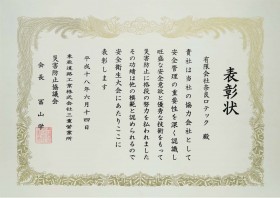 表彰状
有限会社奈良ロテック 殿
貴社は当社の協力会社として
安全管理の重要性を深く認識し
旺盛な安全意欲と優秀な技術をもって
災害防止に格段の努力を払われました
その功績は他の模範と認められるので
安全衛生大会にあたりここに
表彰します
平成十八年六月十四日
東亜道路工業株式会社三重営業所
災害防止協議会
会長 富山 学